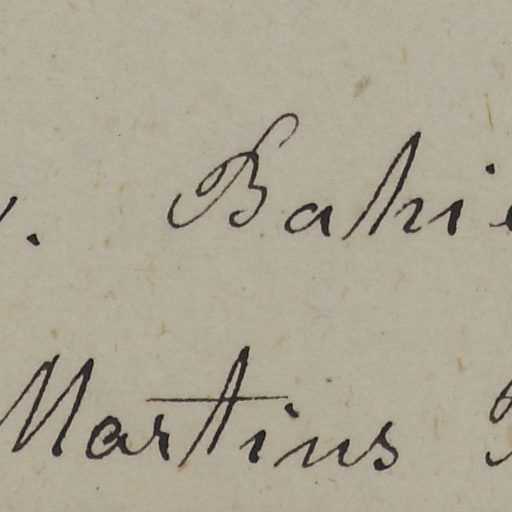 . Bahi
Martins